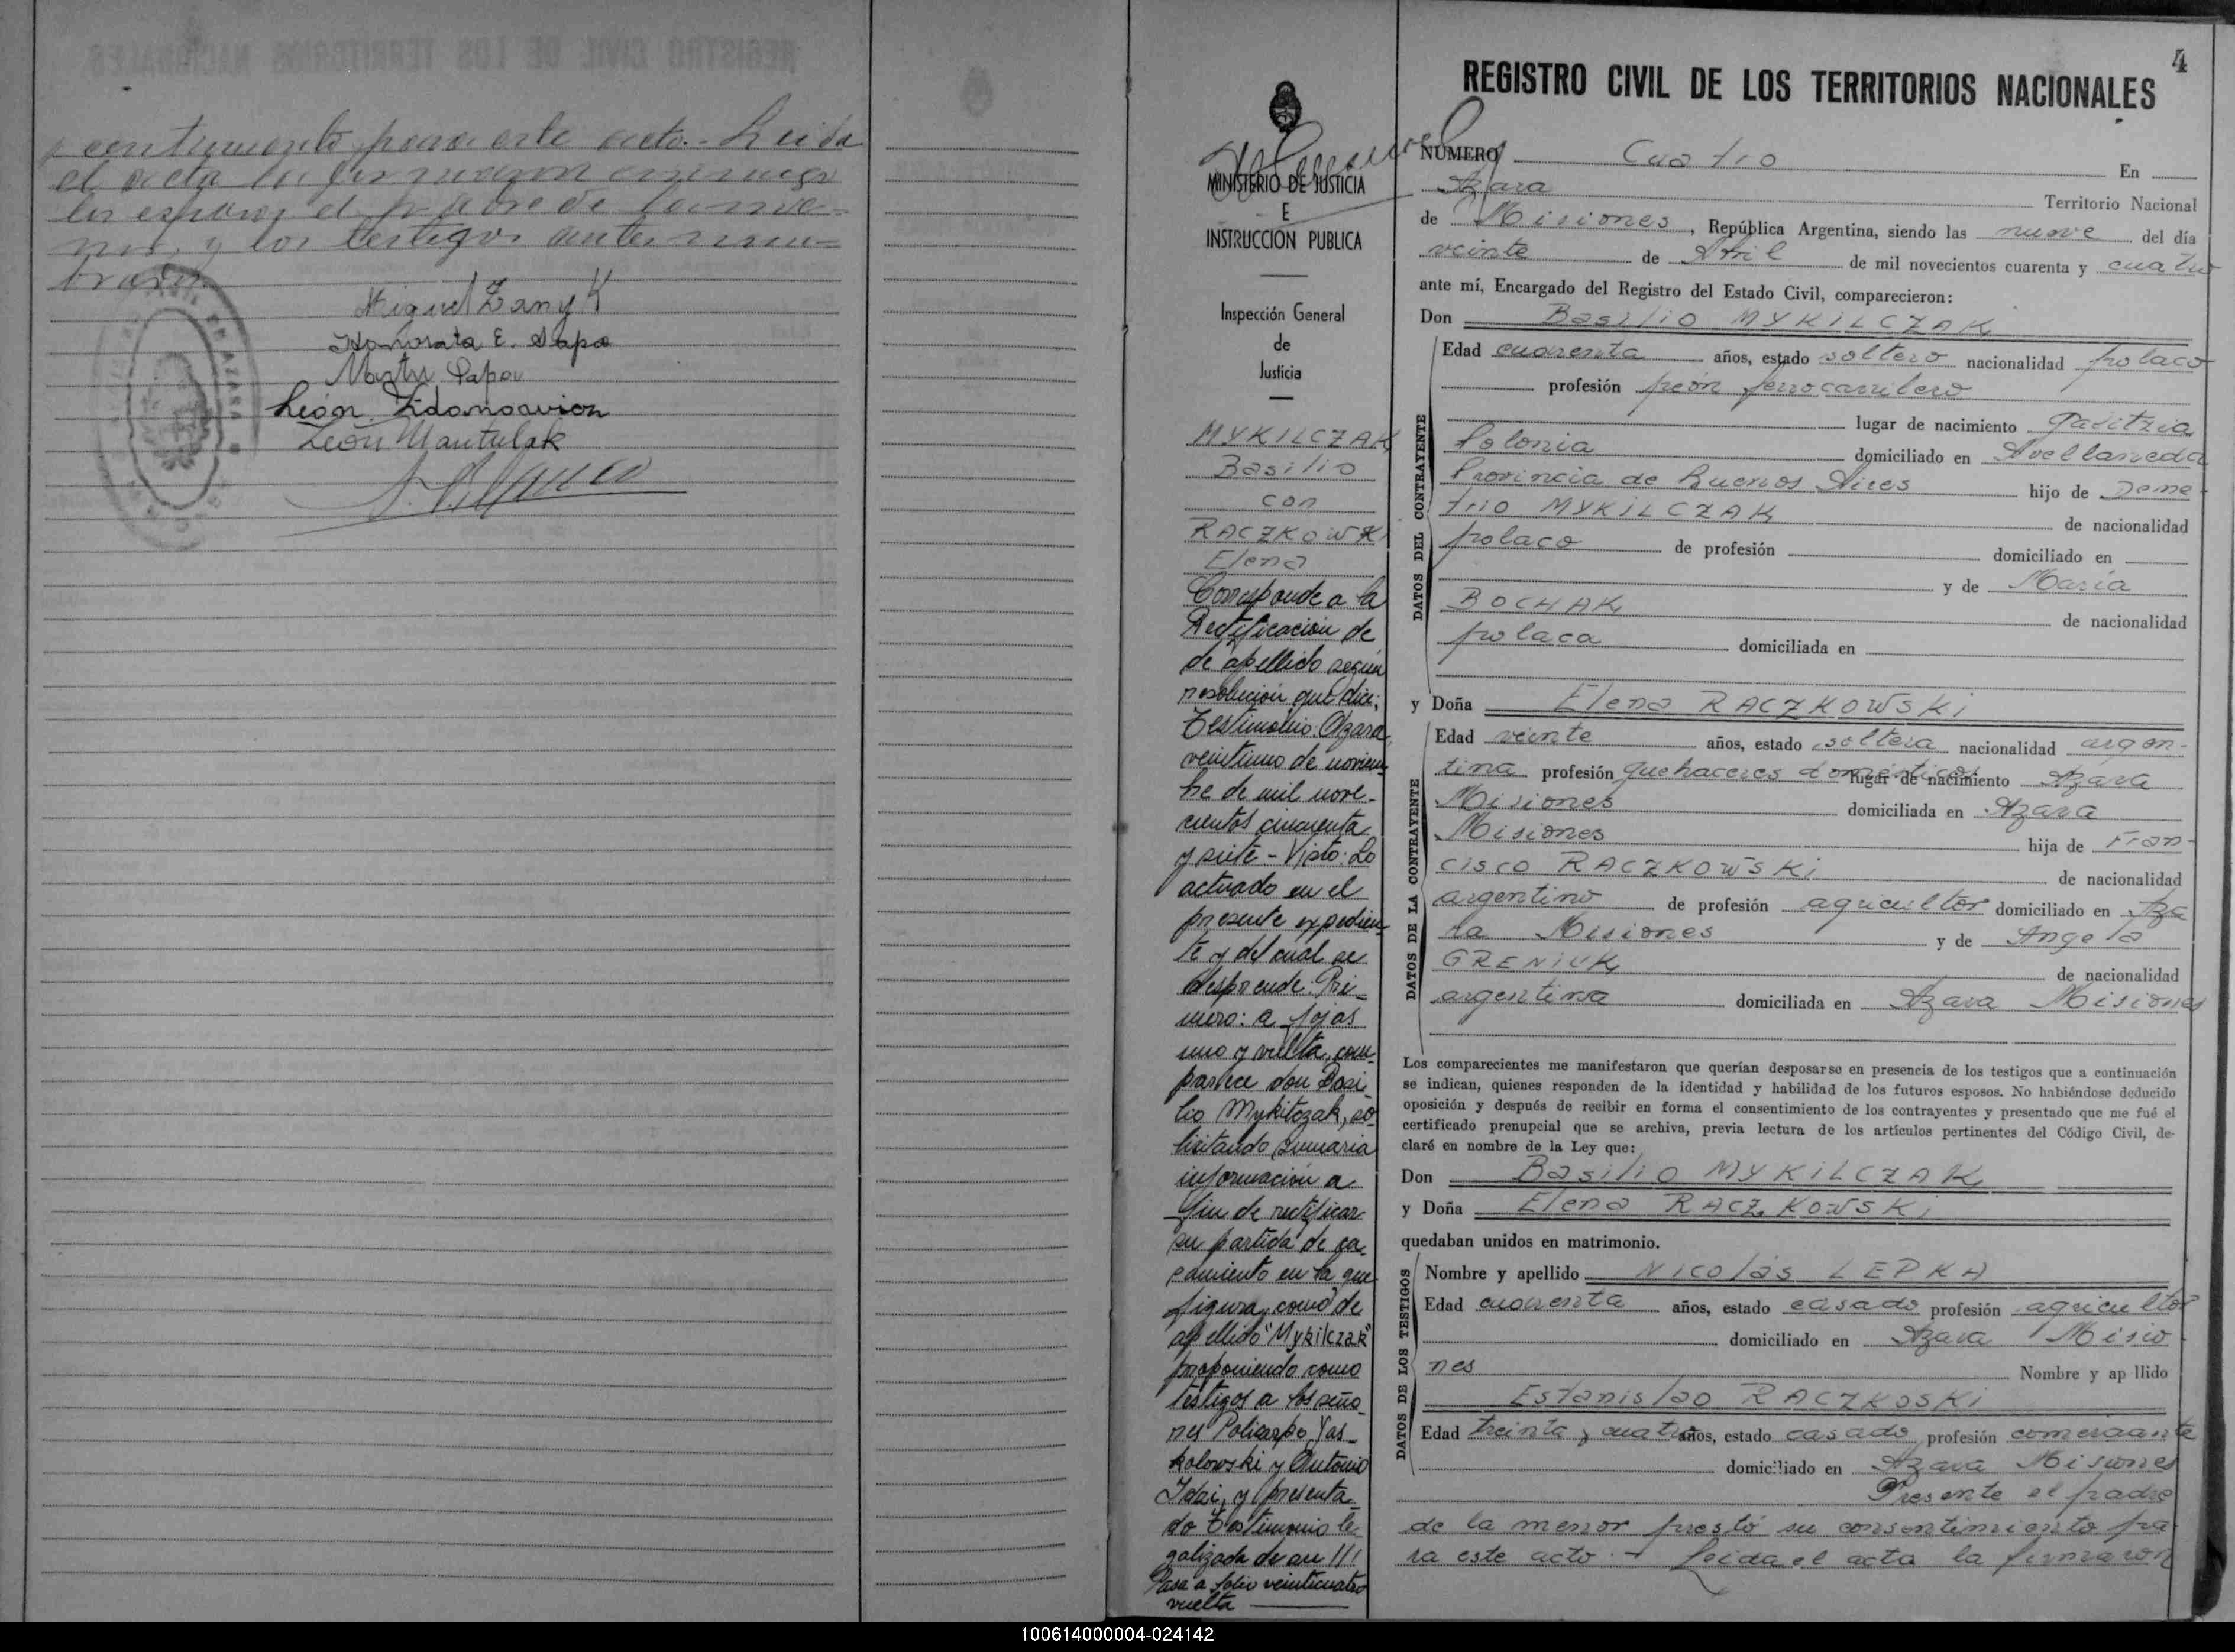 consentimiento para este acto.- Leida
el acta la firmaron conmigo
los esposos el padre de la me-
nor, y los testigos antes nom-
brados.
Miguel Zanyk
Honorata E. Sapa
León
León Mantulak
4
REGISTRO CIVIL DE LOS TERRITORIOS NACIONALES
MINISTERIO DE JUSTICIA
E
INSTRUCCION PUBLICA
Inspección General
de
Justicia
MYKILCZAK
Basilio
con
RACZKOWSKI
Elena
Corresponde a la
Rectificación de
de apellido según
resolución que dice;
Testimonio: Azara,
veintiuno de noviem-
bre de mil nove-
cientos cincuenta
y siete - Visto: Lo
actuado en el
presente expedien-
te y del cual se
desprende: Pri-
mero: a fojas
uno y vuelta, com-
parece don Basi-
lio Mykitczak, so-
licitando sumaria
información a
fin de rectificar
su partida de ca-
samiento en la que
figura, como de
apellido "Mykilczak"
proponiendo como
testigos a los seño-
res Policarpo Yas-
kolowski y Antonio
y presenta-
do Testimonio le-
galizada de su ///
Pasa a folio veinticuatro
vuelta
NÚMERO Cuatro En
Azara Territorio Nacional
de Misiones, República Argentina, siendo las nueve del día
veinte de Abril de mil novecientos cuarenta y cuatro
ante mí, Encargado del Registro del Estado Civil, comparecieron:
Don Basilio MYKILCZAK
DATOS DEL CONTRAYENTE
Edad cuarenta años, estado soltero nacionalidad polaco
profesión peón ferrocarrilero
lugar de nacimiento Galitzia
Polonia domiciliado en Avellaneda
Provincia de Buenos Aires hijo de Deme-
trio MYKILCZAK de nacionalidad
polaco de profesión domiciliado en
y de María
BOCHAK de nacionalidad
polaca domiciliada en
y Doña Elena RACZKOWSKI
DATOS DE LA CONTRAYENTE
Edad veinte años, estado soltera nacionalidad argen-
tina profesión quehaceres domésticos lugar de nacimiento Azara
Misiones domiciliada en Azara
Misiones hija de Fran-
cisco RACZKOWSKI de nacionalidad
argentino de profesión agricultor domiciliado en Aza
ra Misiones y de Angela
GRENIUK de nacionalidad
argentina domiciliada en Azara Misiones
Los comparecientes me manifestaron que querían desposarse en presencia de los testigos que a continuación
se indican, quienes responden de la identidad y habilidad de los futuros esposos. No habiéndose deducido
oposición y después de recibir en forma el consentimiento de los contrayentes y presentado que me fué el
certificado prenupcial que se archiva, previa lectura de los artículos pertinentes del Código Civil, de-
claré en nombre de la Ley que:
Don Basilio MYKILCZAK
y Doña Elena RACZKOWSKI
quedaban unidos en matrimonio.
DATOS DE LOS TESTIGOS
Nombre y apellido Nicolás LEPKA
Edad cuarenta años, estado casado profesión agricultor
domiciliado en Azara Misio
nes Nombre y ap llido
Estanislao RACZKOSKI
Edad treinta y cuatro años, estado casado profesión comerciante
domiciliado en Azara Misiones
Presente el padre
de la menor prestó su consentimiento pa-
ra este acto.- Leida el acta la firmaron
100614000004-024142